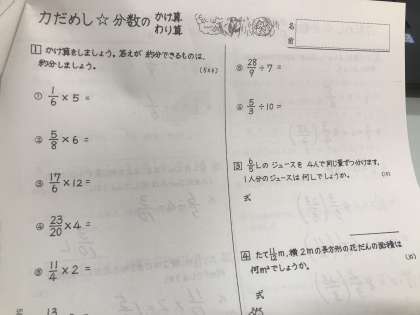 力だめし☆分数の かけ算 わり算
名前
1 かけ算をしましょう。答えが 約分できるものは、
約分しましょう。
① 1/6 × 5 =
② 5/8 × 6 =
③ 17/6 × 12 =
④ 23/20 × 4 =
⑤ 11/4 × 2 =
13
⑤ 28/9 ÷ 7 =
⑥ 5/3 ÷ 10 =
3 6/5 Lの ジュースを 4人で同じ量ずつ分けます。
1人分のジュースは 何Lでしょうか。
式
4 たて 11/12 m、横 2mの長方形の花だんの面積は
何m²でしょうか。
式